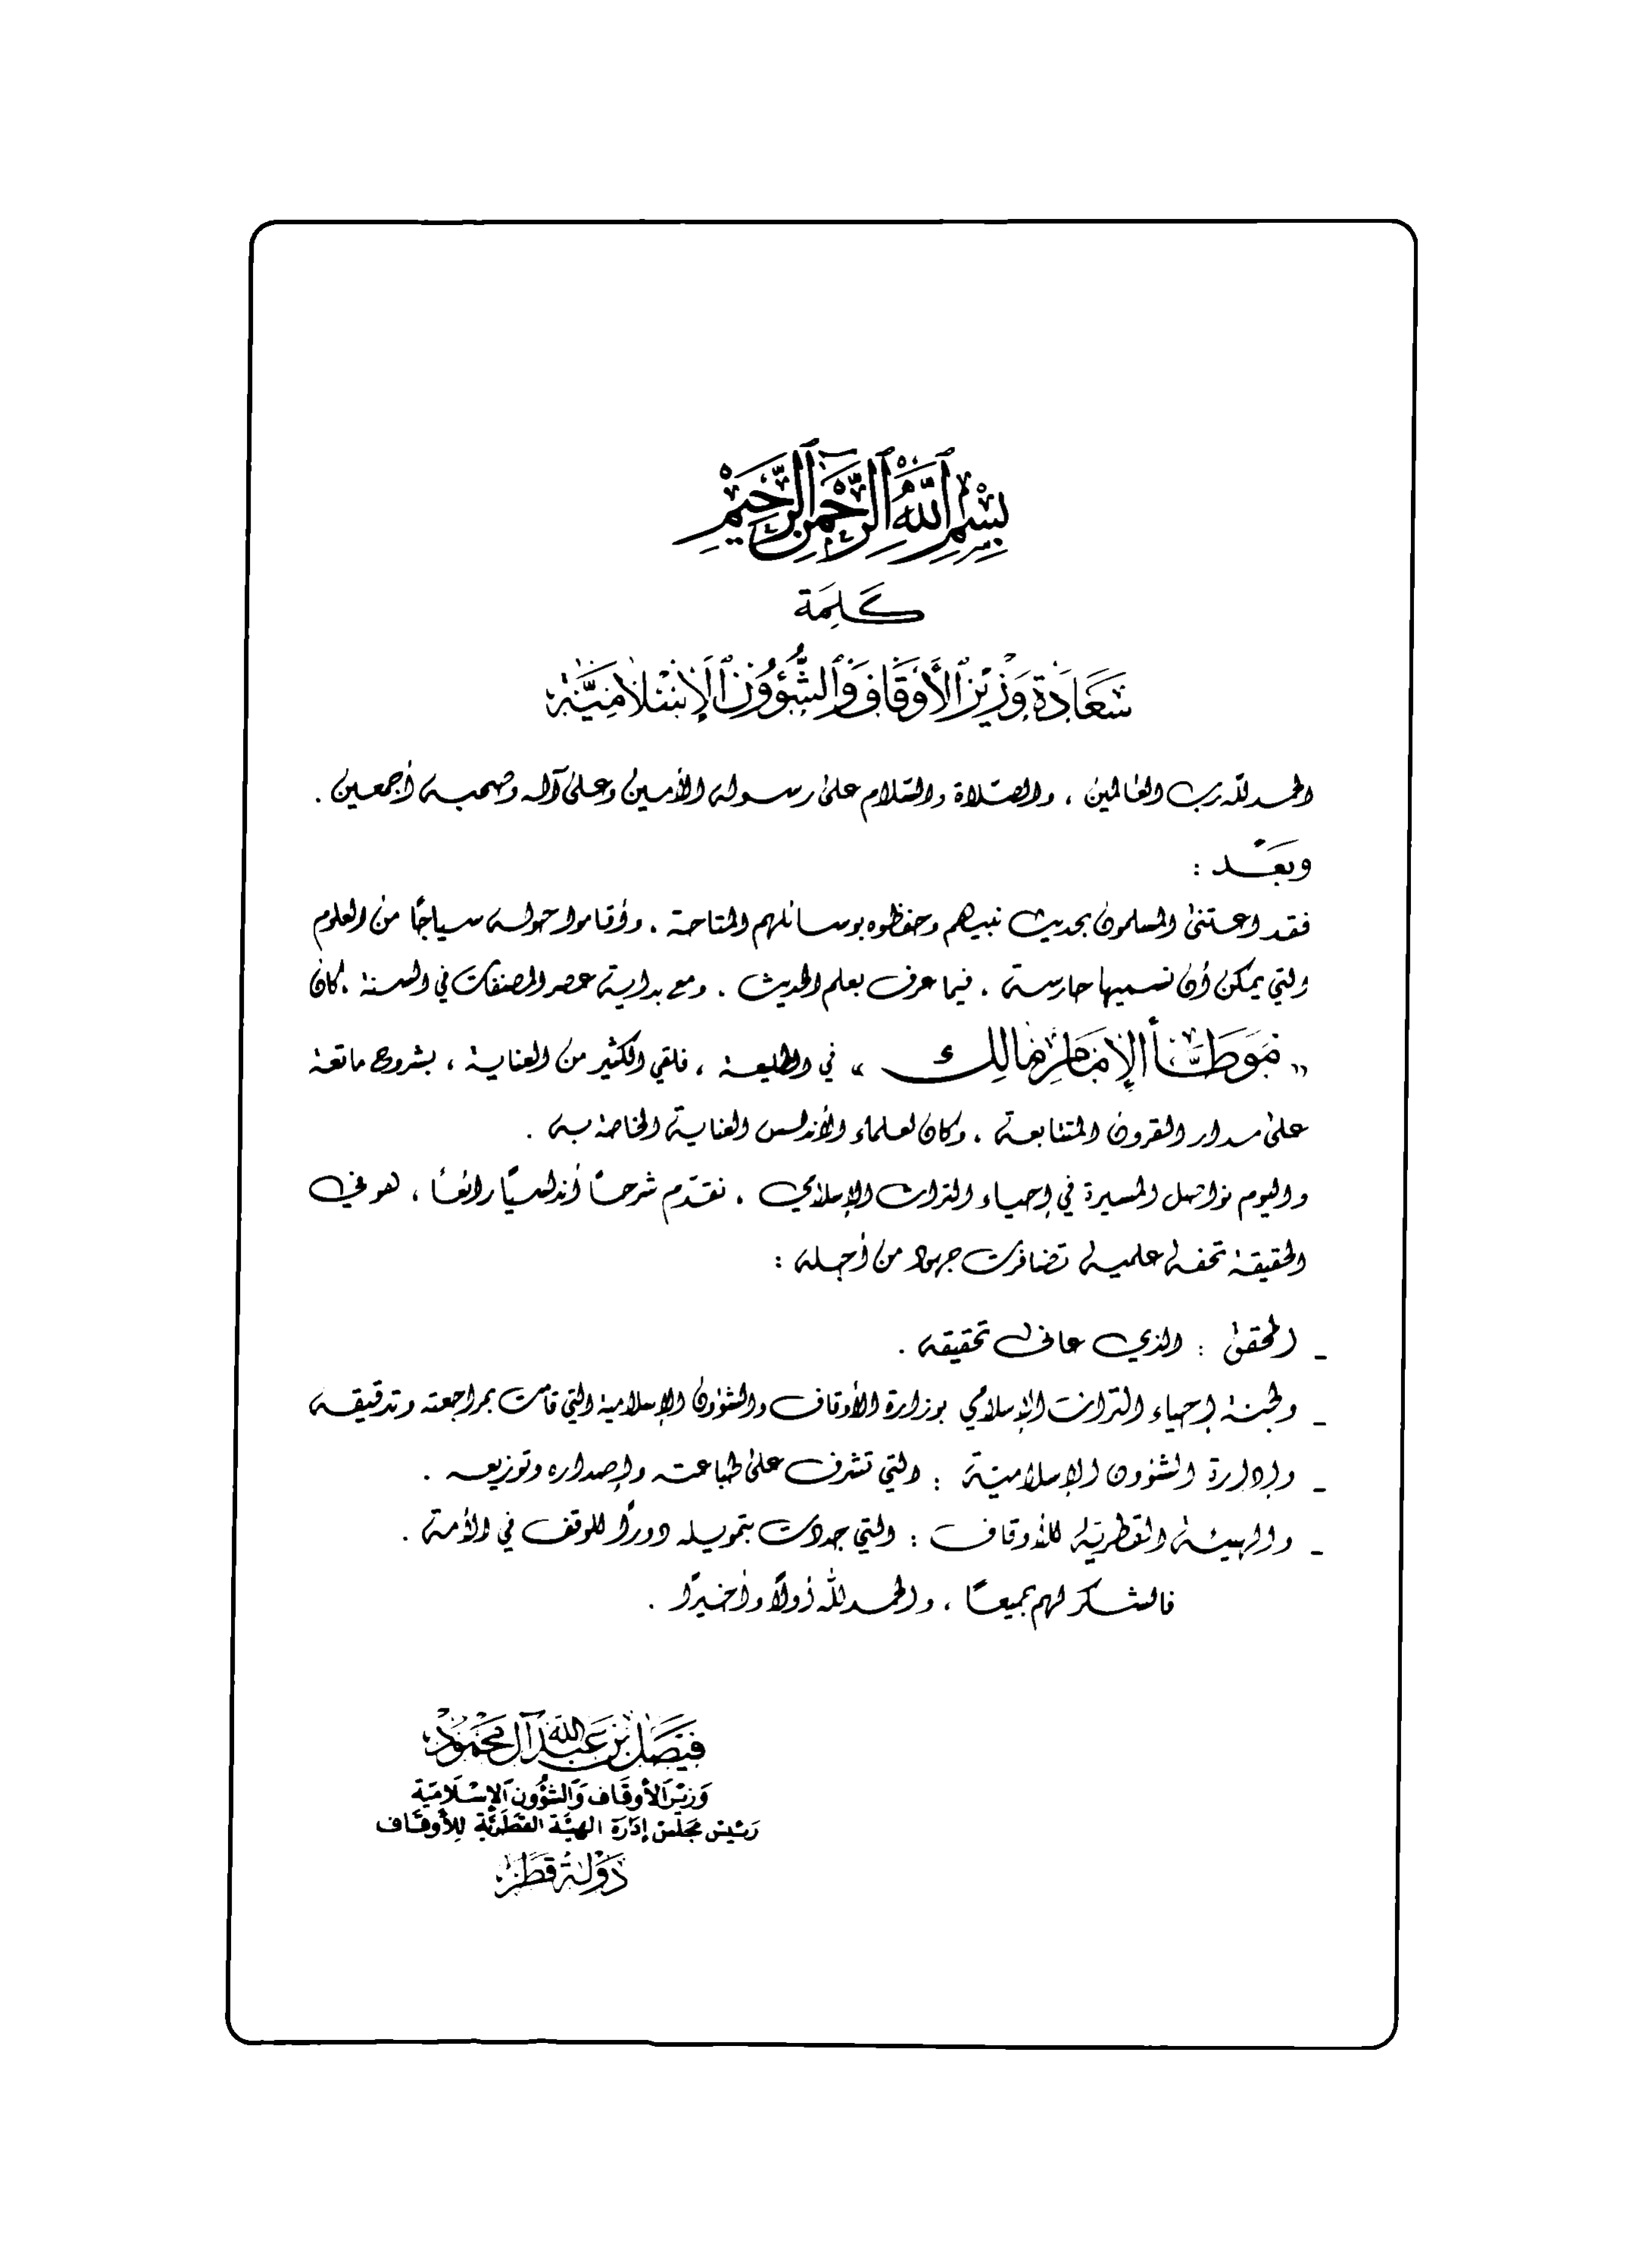 بِسْمِ ٱللَّهِ ٱلرَّحْمَٰنِ ٱلرَّحِيمِ
كَلِمَة
سَعَادَة وَزِيْرِ ٱلْأَوْقَافِ وَٱلشُّؤُوْنِ ٱلْإِسْلَامِيَّةِ
الحمد للّه رب العالمين ، والصّلاة والسّلام على رسوله الأمين وعلى آله وصحبه أجمعين .
وبَعْد :
فقد اعتنى المسلمون بحديث نبيهم وحفظوه بوسائلهم المتاحة ، وأقاموا حوله سياجًا من العلوم
والتي يمكن أن نسميها حارسة ، فيما عرف بعلم الحديث . ومع بداية عصر المصنفات في السنة ، كان
« مُوَطَّأ الإِمَامِ مَالِك » في الطليعة ، فلقي الكثير من العناية ، بشروح ماتعة
على مدار القرون المتتابعة ، وكان لعلماء الأندلس العناية الخاصة به .
واليوم نواصل المسيرة في إحياء التراث الإسلامي ، نقدّم شرحًا أندلسيًا رائعًا ، هو في
الحقيقة تحفة علمية تضافرت جهود من أجله :
ـ المحقق : الذي عانى تحقيقه .
ـ ولجنة إحياء التراث الإسلامي بوزارة الأوقاف والشؤون الإسلامية التي قامت بمراجعته وتدقيقه
ـ وإدارة الشؤون الإسلاميّة : التي تشرف على طباعته وإصداره وتوزيعه .
ـ والهيئة القطريّة للأوقاف : التي جددت بتمويله دورًا للوقف في الأمة .
فالشكر لهم جميعًا ، والحمد للّه أولًا وأخيرًا .
فَيْصَل بْن عَبْد اللّه آل مَحْمُوْد
وَزِيْر الأَوقَاف وَالشُّؤُون الإِسْلَامِيَّة
رَئِيْس مَجْلِس إدَارَة الهيئَة القطَريَّة لِلأَوقَاف
دَوْلَة قَطَر